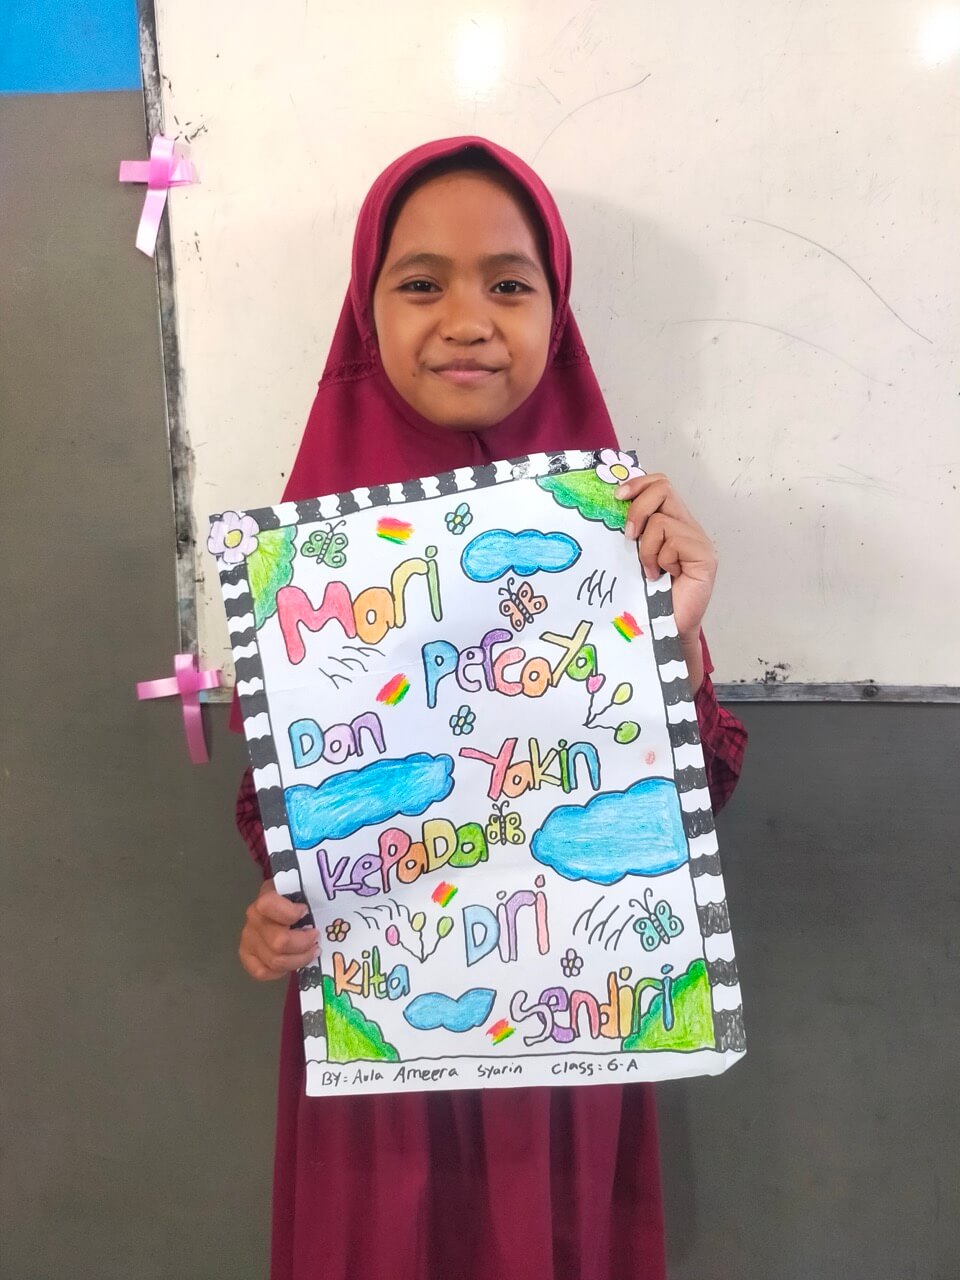 Mari
Percaya
Dan
Yakin
Kepada
Diri
Kita
Sendiri
BY: Aula Ameera Syarin Class: 6-A